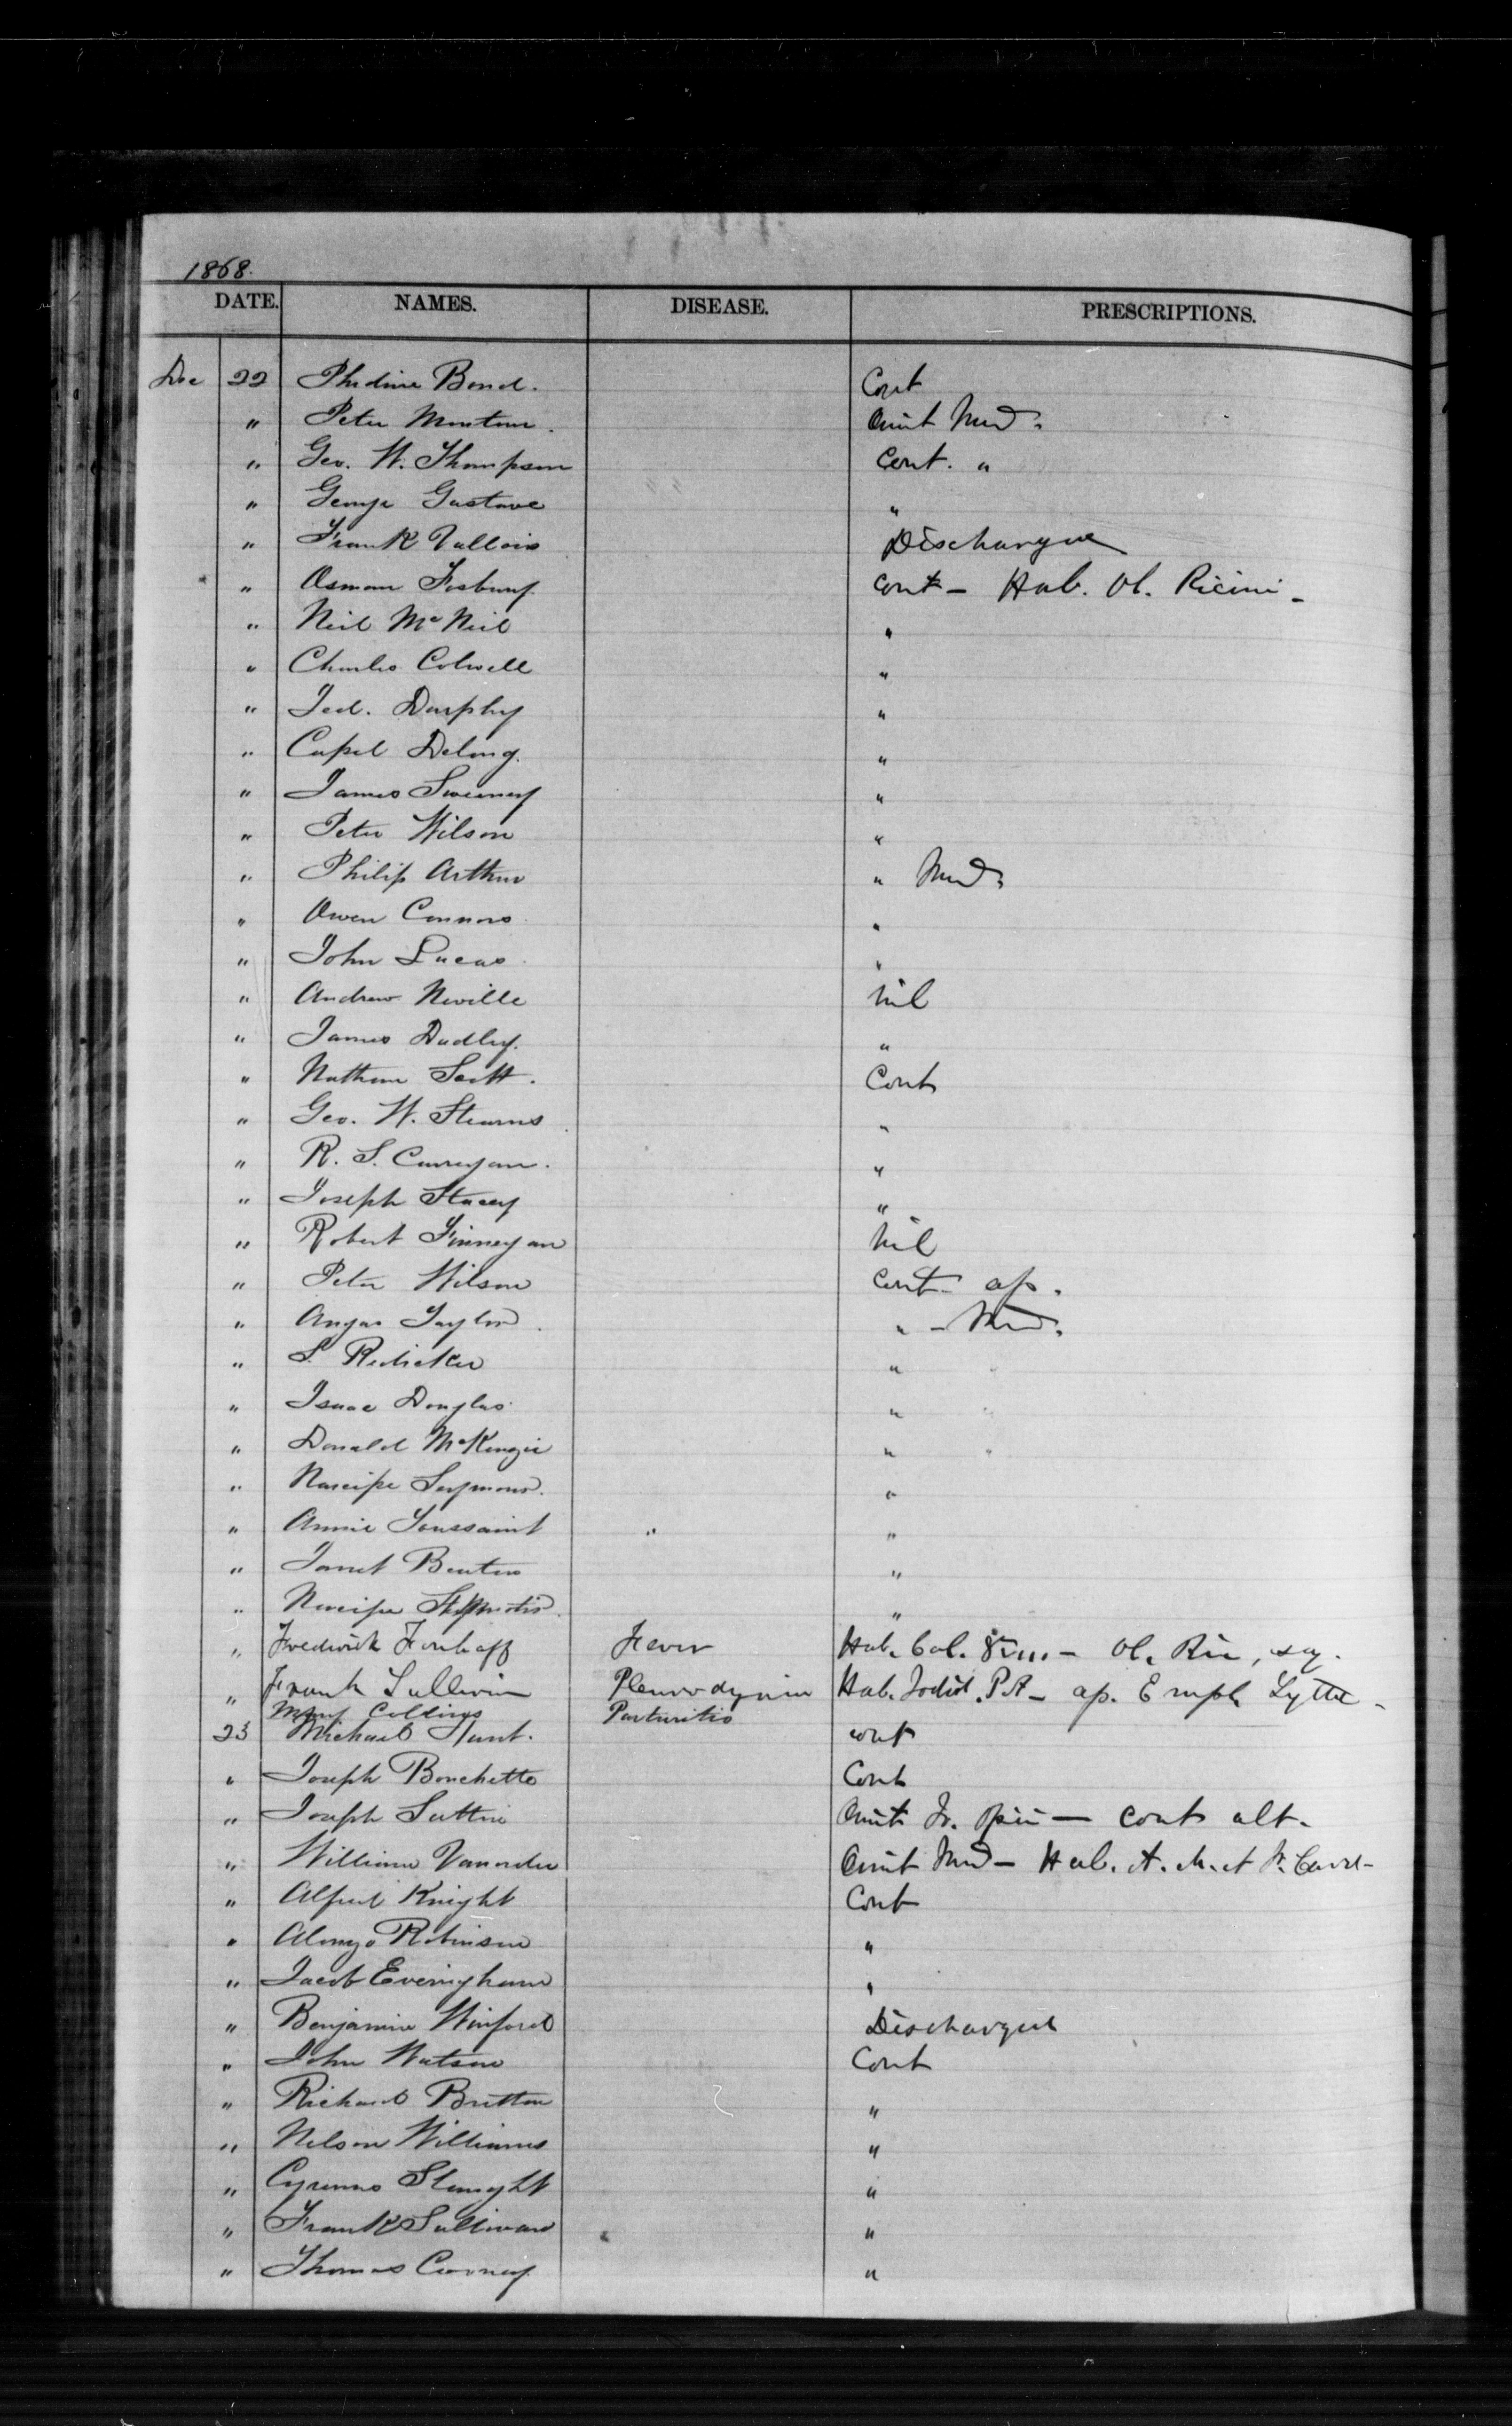 1868.
DATE. NAMES. DISEASE. PRESCRIPTIONS.
Dec 22 Phidime Bond. Cont
" Peter Omit Med.
" Geo. W. Thompson Cont. "
" George Gustave "
" Frank Vallois Discharged
" Osman Cont - Hab. Ol. Ricini -
" Neil McNeil "
" Charles Colwell "
" Jed. Darphy "
" Capel Delong. "
" James Sweeney "
" Peter Wilson "
" Philip Arthur " Med.
" Owen Connors "
" John Lucas "
" Andrew Neville Nil
" James Dudley. "
" Nathan Scott. Cont
" Geo. W. Stearns "
" R. S. "
" Joseph Stacey "
" Robert Finnegan Nil
" Peter Wilson Cont - ap.
" Angus Taylor " - Med.
" S. Redicker " "
" Isaac Douglas " "
" Donald McKenzie " "
" Narcisse "
" Annie Toussaint " "
" Janet "
" Narcisse "
" Fredwick Fever Hab. Cal. - Ol. Ric,
" Frank Sullivan Pleurodynia Hab. Iodid. Pot - ap. Empl. Lyttæ -
Mary Collins Parturitio
23 Michael Hunt. Cont
" Joseph Bouchette Cont
" Joseph Suttie Omit Tr. Opii - Cont alt.
" William Vanorder Omit Med - Hab.
" Alfred Knight Cont
" Alonzo Robinson "
" Jacob Everingham "
" Benjamin Winford Discharged
" John Watson Cont
" Richard Britton "
" Nelson Williams "
" Cyrenus Slaught "
" Frank Sullivan "
" Thomas "